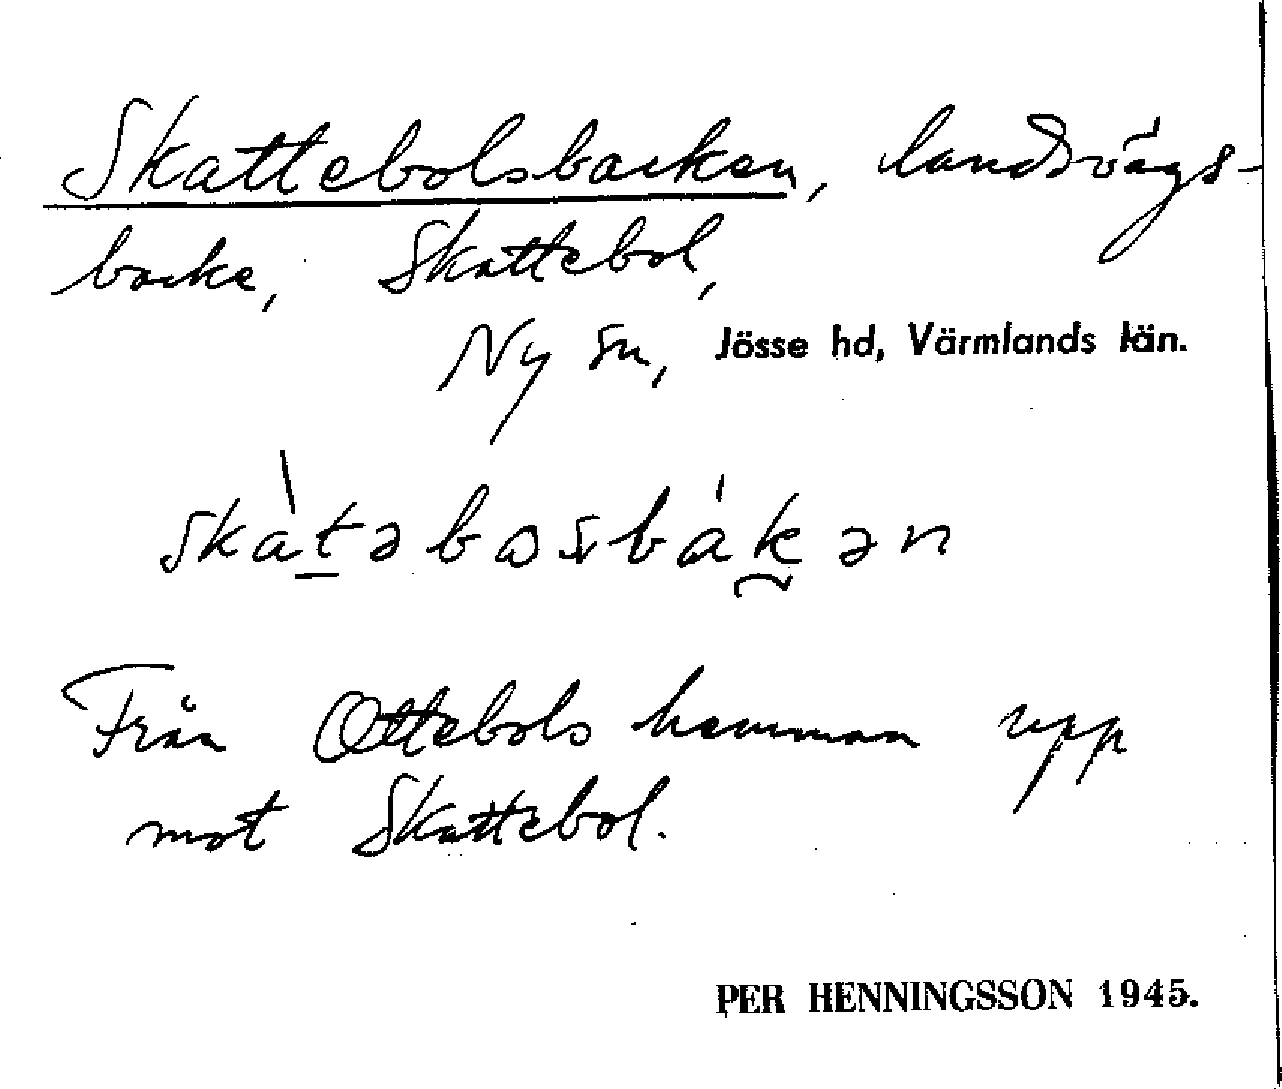 Skattebolsbacken, landsvägs-
backe, Skattebol,
Ny sn, Jösse hd, Värmlands län.
skàtəbωsbákən
Från Ottebols hemman upp
mot Skattebol.
PER HENNINGSSON 1945.